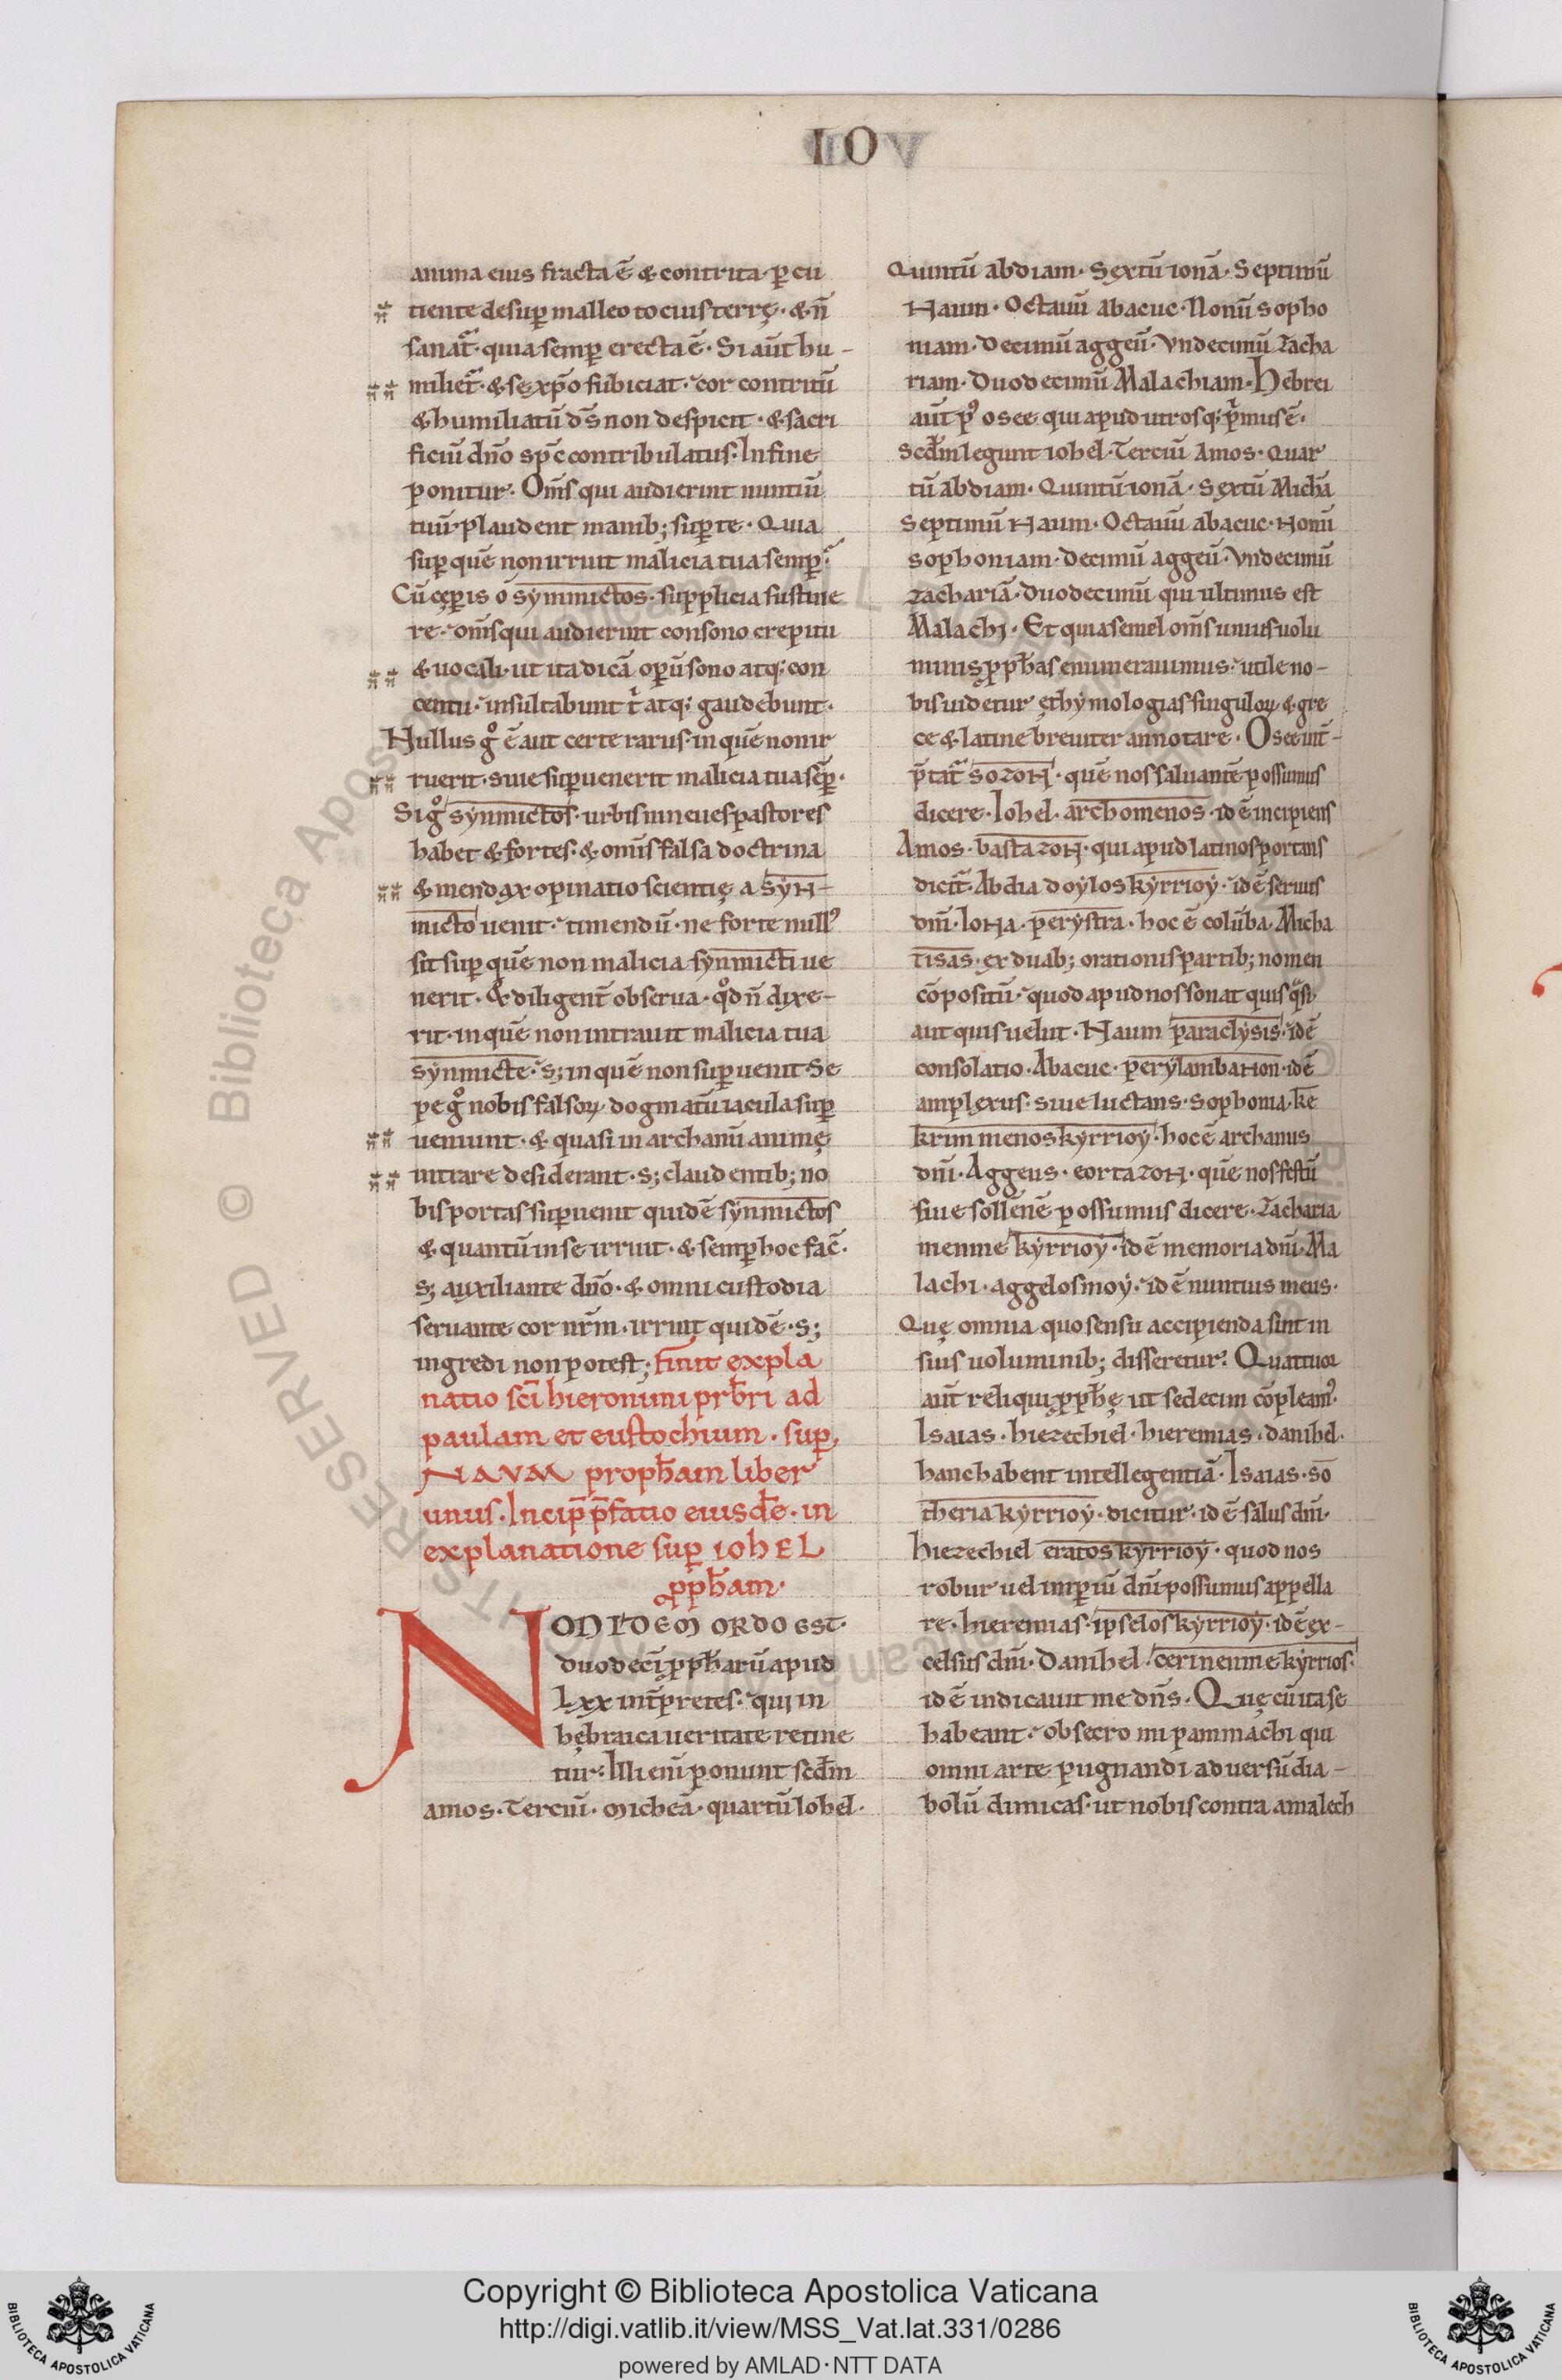 IO
anima eius fracta ē & contrita· ꝑcu
tiente desuꝑ malleo tocius terrę· & n̄
sanat᷑· quia semꝑ erecta ē· Si aūt hu-
miliet᷑· & se xp̄o subiciat· cor contritū
& humiliatū ds̄ non despicit· & sacri
ficiū dn̄o sp̄c contribulatus· In fine
ponitur· Om̄s qui audierint nuntiū
tuū· plaudent manib; suꝑ te· Quia
suꝑ quē non irruit malicia tua semꝑ·
Cū cęꝑis o symmictos· supplicia sustine
re· om̄s qui audierint consono crepitu
& uocali· ut ita dicā opū sono atq; con
centu· insultabunt t̄ atq; gaudebunt·
Nullus gͦ ē aut certe rarus· in quē non ir
ruerit· siue suꝑuenerit malicia tua sēꝑ·
Si gͦ synmictos· urbis nineues pastores
habet & fortes· & om̄is falsa doctrina
& mendax opinatio scientię a syn-
micto uenit· timendū· ne forte null᾽
sit suꝑ quē non malicia synmicti ue
nerit· & diligent̄ obserua· qͦd n̄ dixe-
rit· in quē non intrauit malicia tua
synmicte· s; in quē non suꝑuenit· Se
pe gͦ nobis falsoꝝ dogmatū iacula suꝑ
ueniunt· & quasi in archanū animę
intrare desiderant· s; claudentib; no
bis portas suꝑuenit quidē synmictos
& quantū in se irruit· & semꝑ hoc fac̄·
s; auxiliante dn̄o· & omni custodia
seruante cor nr̄m· irruit quidē· s;
ingredi non potest; finit expla
natio sc̄i hieronimi prb̄ri ad
paulam et eustochium· suꝑ
NAVM proph̄am liber
unus· Incip̄ p̄fatio eiusdē· in
explanatione suꝑ iohEL
ꝓph̄am·
NON IDEM ORDO EST·
duodecī ꝓph̄arū apud
Lxx int̄ꝑretes· qui in
hębraica ueritate retine
tur· Illi enī ponunt scd̄m
amos· Terciū· Micheā· quartū Iohel·
Quintū abdiam· Sextū ionā· Septimū
Naum· Octauū abacuc· Nonū sopho
niam· Decimū aggeū· Vndecimū Zacha
riam· Duodecimū Malachiam· Hebrei
aūt p᾽ osee qui apud utrosq; p̄mus ē·
Scd̄m legunt iohel· Terciū Amos· Quar
tū abdiam· Quintū ionā· Sextū Michā
Septimū Naum· Octauū abacuc· Nonū
sophoniam· Decimū aggeū· Vndecimū
zachariā· Duodecimū qui ultimus est
Malachi· Et quia semel om̄s unius uolu
minis ꝓph̄as enumerauimus· utile no-
bis uidetur ęthymologias singuloꝝ & gre
ce & latine breuiter annotare· Osee int̄-
p̄tat᷑ sozon· quē nos saluantē possumus
dicere· Iohel· archomenos· id ē incipiens
Amos· bastazon· qui apud latinos portans
dicit᷑· Abdia doylos kyrrioy· id ē seruus
dn̄i· Iona· perystra· hoc ē colūba· Micha
tisas· ex duab; orationis partib; nomen
cōpositū· quod apud nos sonat quis qᷓsi
aut quis uelut· Naum paraclysis· id ē
consolatio· Abacuc· perylambanon· id ē
amplexus· siue luctans· Sophonia· ke
krimmenos kyrrioy· hoc ē archanus
dn̄i· Aggeus· eortazon· quē nos festū
siue sollēnē possumus dicere· Zacharia
menme kyrrioy· id ē memoria dn̄i· Ma
lachi· aggelos moy· id ē nuntius meus·
Quę omnia quo sensu accipienda sint in
suis uoluminib; disseretur· Quattuor
aūt reliqui ꝓph̄ę ut sedecim cōpleam᾽·
Isaias· hiezechiel· hieremias· danihel·
hanc habent intellegentiā· Isaias· so
theria kyrrioy· dicitur· id ē salus dn̄i·
hiezechiel eratos kyrrioy· quod nos
robur uel imꝑiū dn̄i possumus appella
re· hieremias· ipselos kyrrioy· id ē ex-
celsus dn̄i· Danihel· cerinenme kyrrios·
id ē indicauit me dn̄s· Quę cū ita se
habeant· obsecro mi pammachi qui
omni arte pugnandi aduersū dia-
bolū dimicas· ut nobis contra amalech
Copyright © Biblioteca Apostolica Vaticana
http://digi.vatlib.it/view/MSS_Vat.lat.331/0286
powered by AMLAD·NTT DATA
BIBLIOTECA APOSTOLICA VATICANA
BIBLIOTECA APOSTOLICA VATICANA